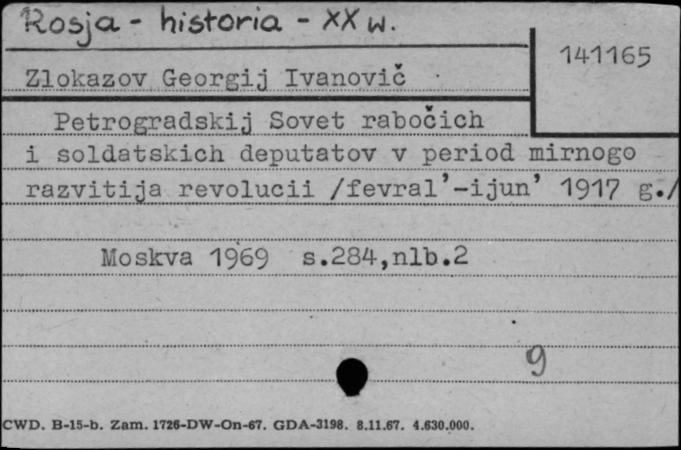 Rosja - historia - XX w.
141165
Zlokazov Georgij Ivanovič
Petrogradskij Sovet rabočich
i soldatskich deputatov v period mirnogo
razvitija revolucii /fevral’-ijun’ 1917 g./
Moskva 1969 s.284,nlb.2
9
CWD. B-15-b. Zam. 1726-DW-On-67. GDA-3198. 8.11.67. 4.630.000.